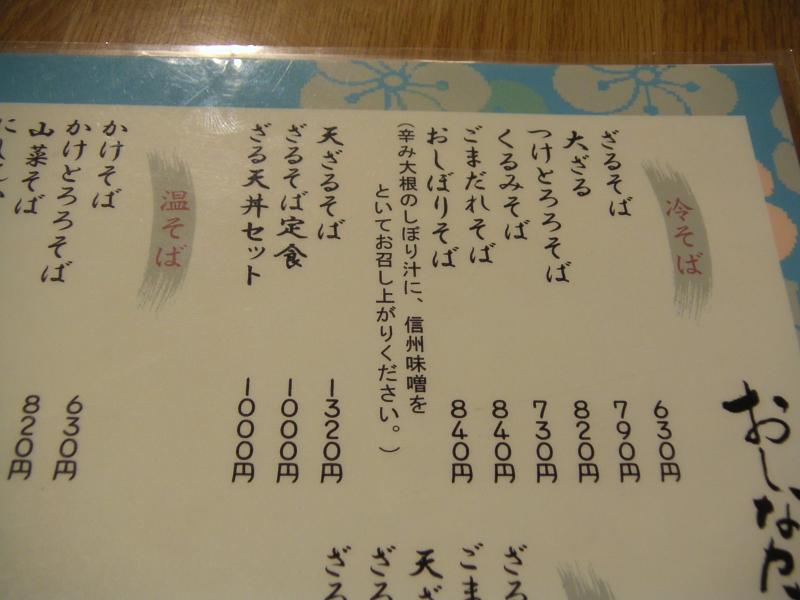 おしなが
冷そば
ざるそば 630円
大ざる 790円
つけとろろそば 820円
くるみそば 730円
ごまだれそば 840円
おしぼりそば 840円
（辛み大根のしぼり汁に、信州味噌を
といてお召し上がりください。）
天ざるそば 1320円
ざるそば定食 1000円
ざる天丼セット 1000円
温そば
かけそば 630円
かけとろろそば 820円
山菜そば
ざる
ごま
天ざ
ざる
ざる